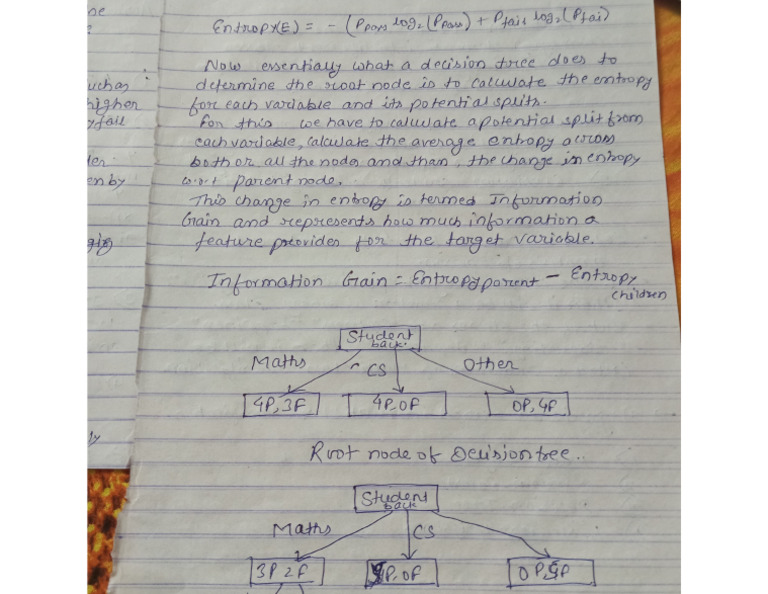 ne
uchas
higher
yfail
enby
Entropy(E) = - (Ppass log2 (Ppass) + Pfail log2 (Pfai)
Now essentially what a decision tree does to
determine the root node is to calculate the entropy
for each variable and its potential splits.
For this we have to calculate a potential split from
each variable, calculate the average entropy across
both or all the nodes and than, the change in entropy
w.r.t parent node.
This change in entropy is termed Information
Gain and represents how much information a
feature provides for the target variable.
Information Gain = Entropy parent - Entropy
children
Student
back
Maths CS Other
4P, 3F 4P, 0F 0P, 4P
Root node of Decision tree..
Student
back
Maths CS
3P 2F P, 0F 0P,